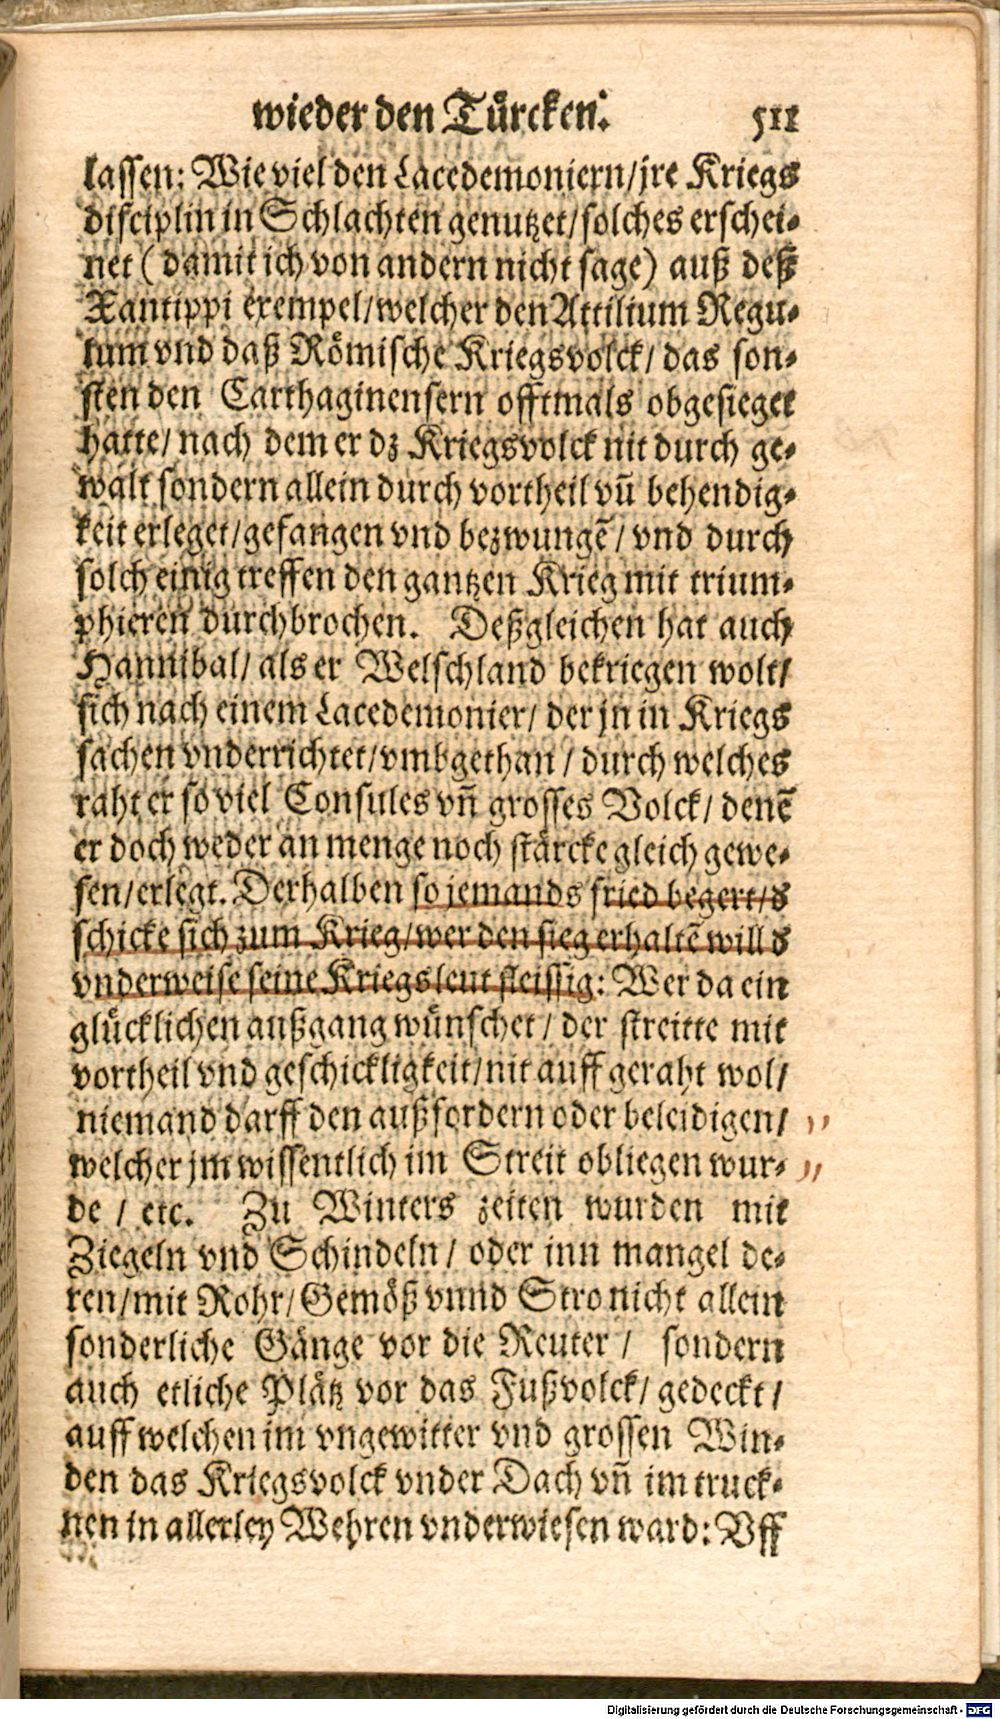 wieder den Türcken. 511
lassen: Wie viel den Lacedemoniern/jre Kriegs
disciplin in Schlachten genutzet/solches erschei-
net (damit ich von andern nicht sage) auß deß
Xantippi exempel/welcher den Attilium Regu-
lum vnd daß Römische Kriegsvolck/ das son-
sten den Carthaginensern offtmals obgesieget
hatte/ nach dem er dz Kriegsvolck nit durch ge-
walt sondern allein durch vortheil vñ behendig-
keit erleget/gefangen vnd bezwungẽ/ vnd durch
solch einig treffen den gantzen Krieg mit trium-
phieren durchbrochen. Deßgleichen hat auch
Hannibal/ als er Welschland bekriegen wolt/
sich nach einem Lacedemonier/ der jn in Kriegs
sachen vnderrichtet/vmbgethan / durch welches
raht er so viel Consules vñ grosses Volck/ denẽ
er doch weder an menge noch stärcke gleich gewe-
sen/erlegt. Derhalben so jemands fried begert/d
schicke sich zum Krieg/wer den sieg erhaltẽ will d
vnderweise seine Kriegsleut fleissig: Wer da ein
glücklichen außgang wünschet / der streitte mit
vortheil vnd geschickligkeit/nit auff geraht wol/
niemand darff den außfordern oder beleidigen/
welcher jm wissentlich im Streit obliegen wur-
de / etc. Zu Winters zeiten wurden mit
Ziegeln vnd Schindeln / oder inn mangel de-
ren/mit Rohr/ Gemöß vnnd Stro nicht allein
sonderliche Gänge vor die Reuter / sondern
auch etliche Plätz vor das Fußvolck/ gedeckt /
auff welchen im vngewitter vnd grossen Win-
den das Kriegsvolck vnder Dach vñ im truck-
nen in allerley Wehren vnderwiesen ward: Vff
Digitalisierung gefördert durch die Deutsche Forschungsgemeinschaft - DFG